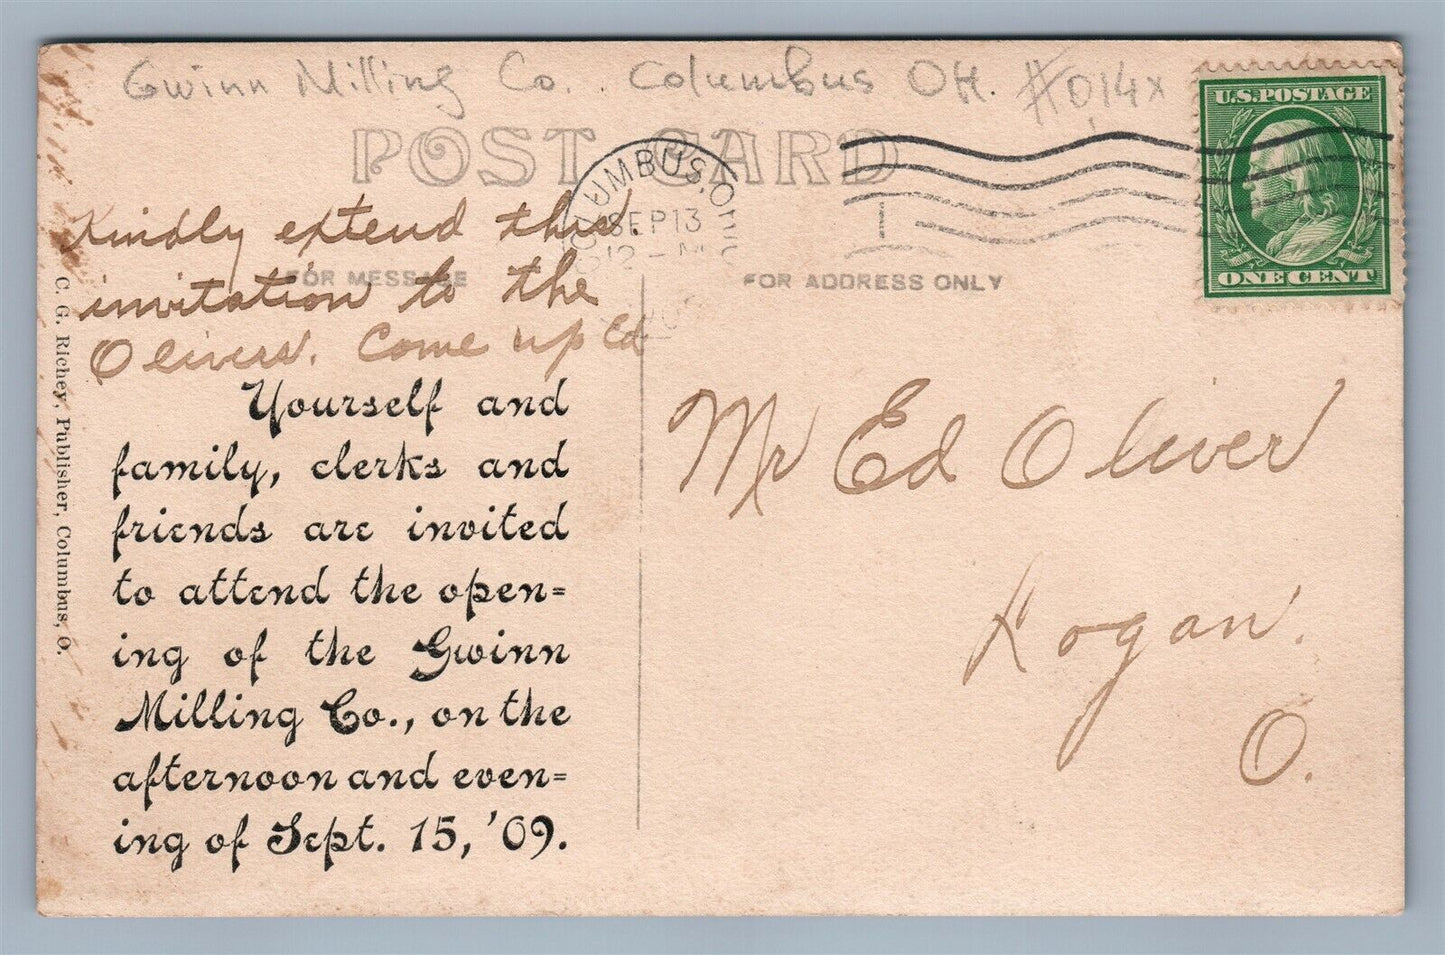 Gwinn Milling Co. Columbus OH. #014x
POST CARD
U.S. POSTAGE
ONE CENT
COLUMBUS, OHIO
SEP 13
12 - M
FOR MESSAGE
FOR ADDRESS ONLY
Kindly extend this
invitation to the
Olivers. Come up Ed
Yourself and
family, clerks and
friends are invited
to attend the open=
ing of the Gwinn
Milling Co., on the
afternoon and even=
ing of Sept. 15, '09.
C. G. Richey, Publisher, Columbus, O.
Mr Ed Oliver
Logan.
O.